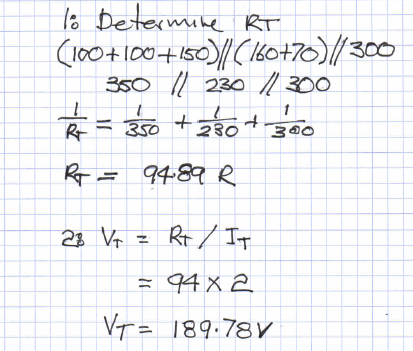 1: Determine RT
(100+100+150)//(160+70)//300
350 // 230 // 300
1/RT = 1/350 + 1/230 + 1/300
RT = 94.89 R
2: VT = RT / IT
= 94 x 2
VT = 189.78V